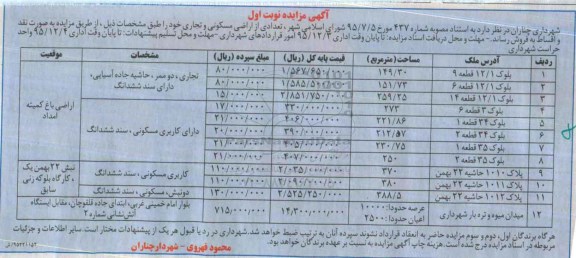 آگهی مزایده نوبت اول
شهرداری چناران در نظر دارد به استناد مصوبه شماره ۴۳۷ مورخ ۹۵/۷/۵ شورای اسلامی شهر، تعدادی از اراضی مسکونی و تجاری خود را طبق مشخصات ذیل، از طریق مزایده به صورت نقد
و اقساط به فروش رساند. - مهلت و محل دریافت اسناد مزایده: تا پایان وقت اداری ۹۵/۱۲/۳ امور قراردادهای شهرداری - مهلت و محل تسلیم پیشنهادات: تا پایان وقت اداری ۹۵/۱۲/۴ واحد
حراست شهرداری
ردیف آدرس ملک مساحت (مترمربع) قیمت پایه کل (ریال) مبلغ سپرده (ریال) مشخصات موقعیت
۱ بلوک ۱۲/۱ قطعه ۹ ۱۴۹/۳۰ ۱/۵۶۷/۶۵۰/۰۰۰ ۸۰/۰۰۰/۰۰۰
۲ بلوک ۱۲/۱ قطعه ۶ ۱۵۱/۷۳ ۸۰/۰۰۰/۰۰۰
۳ بلوک ۱۲/۱ قطعه ۱۴ ۲۵۹/۲۵ ۲/۸۵۱/۷۵۰/۰۰۰
تجاری، دو ممر، حاشیه جاده آسیایی، دارای سند ششدانگ
۴ بلوک ۳ قطعه ۶ ۲۷۳ ۳۳۰/۰۰۰/۰۰۰ ۱۷/۰۰۰/۰۰۰
۵ بلوک ۳۴ قطعه ۱ ۲۲۱/۸۶ ۴۰۶/۰۰۰/۰۰۰ ۲۱/۰۰۰/۰۰۰
۶ بلوک ۳۴ قطعه ۲ ۲۱۲/۵۷ ۳۹۰/۰۰۰/۰۰۰ ۲۰/۰۰۰/۰۰۰
۷ بلوک ۳۵ قطعه ۱ ۲۳۰/۷۵ ۲۱/۰۰۰/۰۰۰
۸ بلوک ۳۵ قطعه ۲ ۲۵۰ ۴۰۷/۰۰۰/۰۰۰ ۲۱/۰۰۰/۰۰۰
دارای کاربری مسکونی، سند ششدانگ
اراضی باغ کمیته امداد
۹ پلاک ۱۰۱۰ حاشیه ۲۲ بهمن ۳۷۰ ۲/۰۳۵/۰۰۰/۰۰۰ ۱۱۰/۰۰۰/۰۰۰
۱۰ پلاک ۱۰۱۱ حاشیه ۲۲ بهمن ۳۸۰ ۲/۰۹۰/۰۰۰/۰۰۰ ۱۱۰/۰۰۰/۰۰۰
کاربری مسکونی، سند ششدانگ
۱۱ پلاک ۱۰۱۲ حاشیه ۲۲ بهمن ۳۸۸/۵ ۲/۵۲۵/۲۵۰/۰۰۰ ۱۳۰/۰۰۰/۰۰۰ دونبش، مسکونی، سند ششدانگ
نبش ۲۲ بهمن یک، کارگاه بلوکه زنی سابق
۱۲ میدان میوه و تره بار شهرداری عرصه حدودا: ۱۰۰۰۰ اعیان حدودا: ۲۵۰۰ ۱۴/۳۰۰/۰۰۰/۰۰۰ ۷۱۵/۰۰۰/۰۰۰ بلوار امام خمینی غربی، ابتدای جاده قلقوچان، مقابل ایستگاه آتش‌نشانی شماره ۲
هرگاه برندگان اول، دوم و سوم مزایده حاضر به انعقاد قرارداد نشوند سپرده آنان به ترتیب ضبط خواهد شد. شهرداری در رد یا قبول هر یک از پیشنهادات مختار است سایر اطلاعات و جزئیات
مربوطه در اسناد مزایده درج شده است. هزینه چاپ آگهی مزایده به نسبت بر عهده برندگان خواهد بود.
محمود قهروی - شهردار چناران